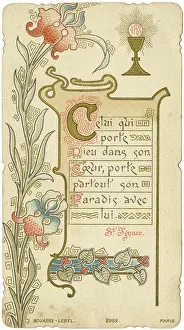 Celui qui
porte
Dieu dans son
Cœur, porte
partout son
Paradis avec
lui.
St Ignace.
BOUASSE-LEBEL. 8969 PARIS